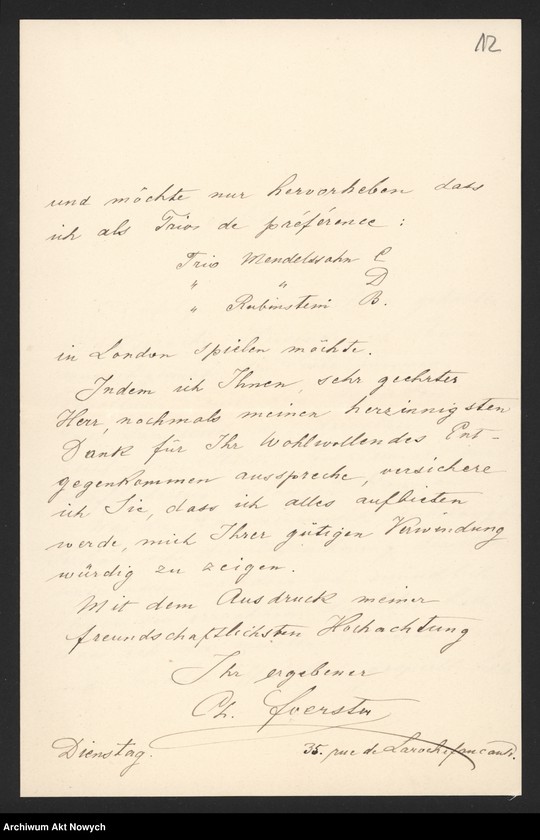 12
und möchte nur hervorheben dass
ich als Trios de préférence :
Trio Mendelssohn C
" " D
" Rubinstein B.
in London spielen möchte.
Indem ich Ihnen, sehr geehrter
Herr, nochmals meinen herzinnigsten
Dank für Ihr Wohlwollendes Ent-
gegenkommen ausspreche, versichere
ich Sie, dass ich alles aufbieten
werde, mich Ihrer gütigen Verwendung
würdig zu zeigen.
Mit dem Ausdruck meiner
freundschaftlichsten Hochachtung
Ihr ergebener
Ch. Foerster
Dienstag.
35. rue de Larochefoucauld.
Archiwum Akt Nowych